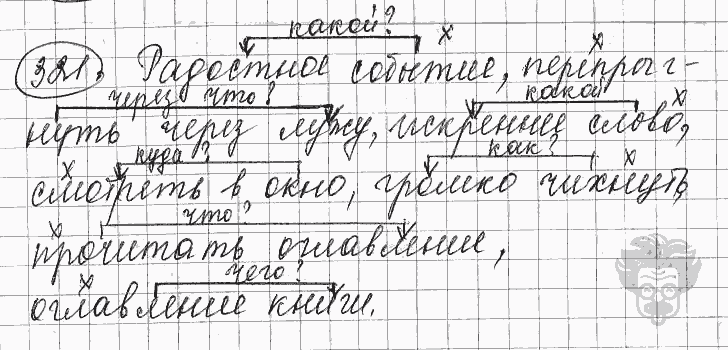 какой?
321. Радостное событие, перепрыг-
через что? какой
нуть через лужу, искренние слово,
куда? как?
смотреть в окно, громко чихнуть,
что?
прочитать оглавление,
чего?
оглавление книги.